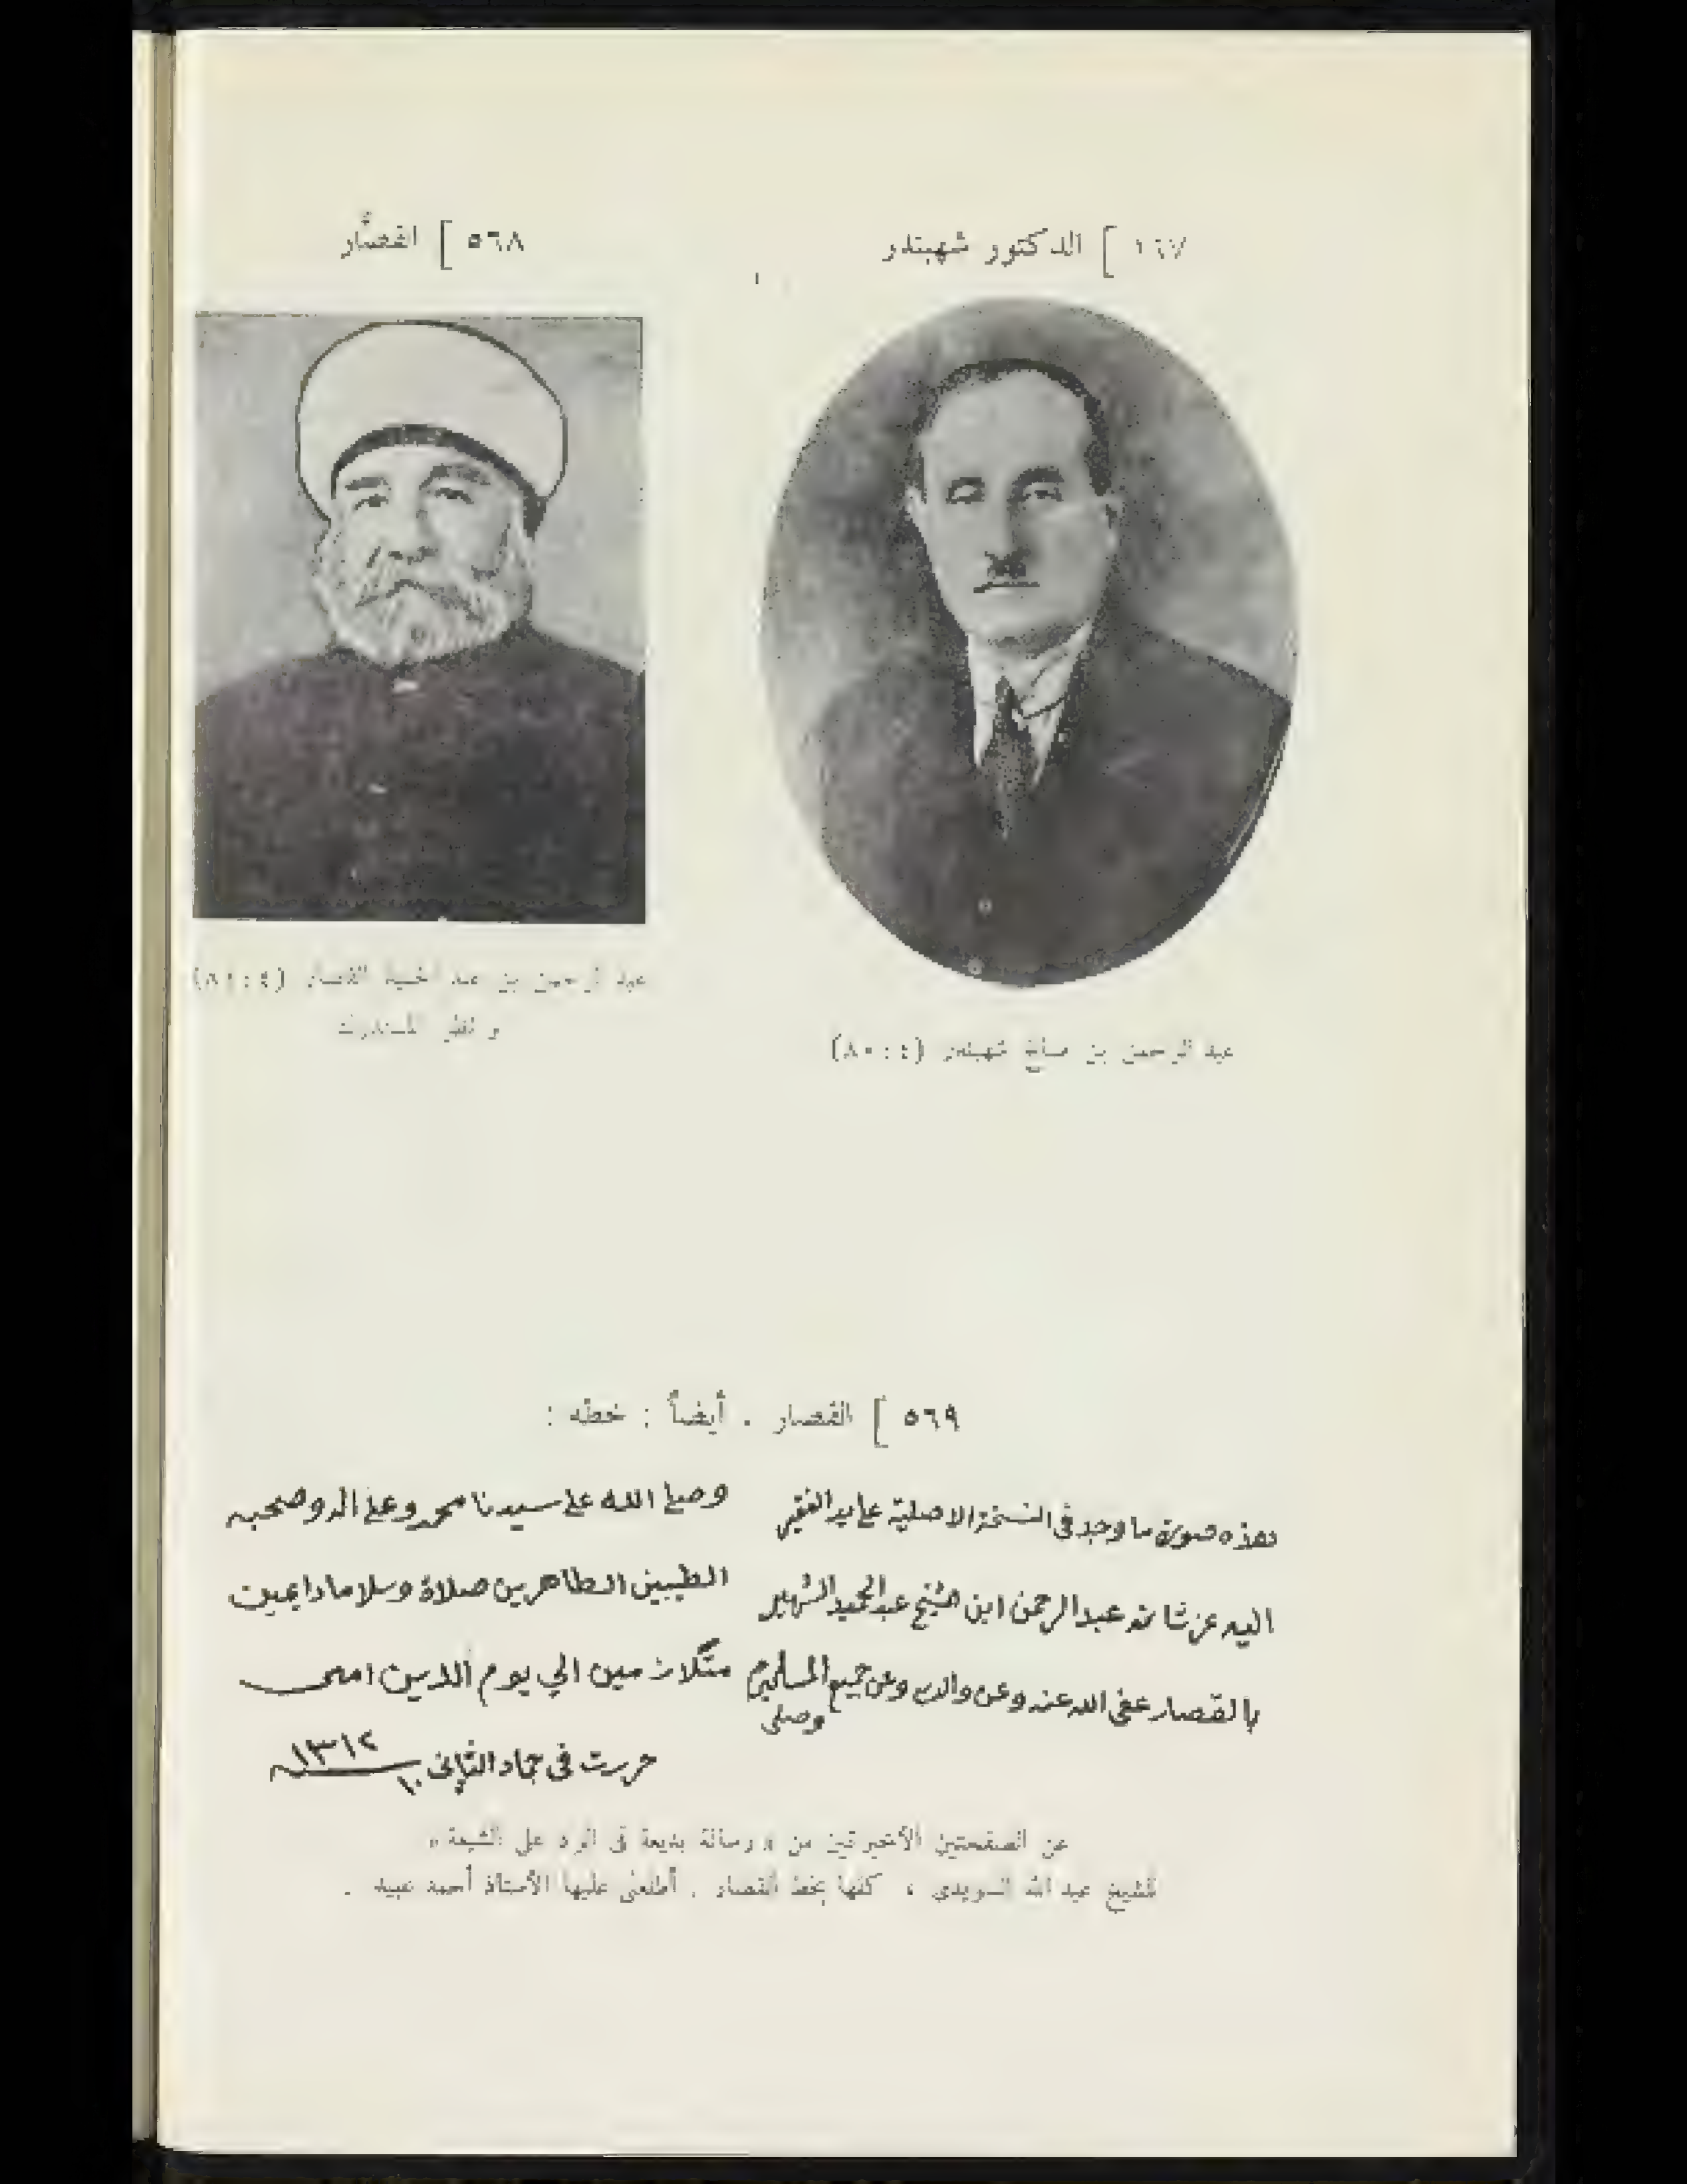 ٥٦٧ ] الدكتور شهبندر
عبد الرحمن بن صالح شهبندر (٤ : ٨٠)
٥٦٨ ] القصَّار
عبد الرحمن بن عبد الحميد القصار (٤ : ٨١)
وانظر المستدرك
٥٦٩ ] القصار . أيضاً : خطه :
هذه صورة ما وجد في النسخة الاصلية على يد الفقير
اليه عز شانه عبد الرحمن ابن الشيخ عبد الحميد الشهير
بالقصار عفى الله عنه وعن والديه وعن جميع المسلمين
وصلى
وصلى الله على سيدنا محمد وعلى اله وصحبه
الطيبين الطاهرين صلاة وسلاما دايمين
متلازمين الي يوم الدين امين
حررت في جماد الثاني ١٠ ١٣١٢
عن الصفحتين الأخيرتين من « رسالة بديعة في الرد على الشيعة »
للشيخ عبد الله السويدي ، كلها بخط القصار . أطلعني عليها الأستاذ أحمد عبيد .